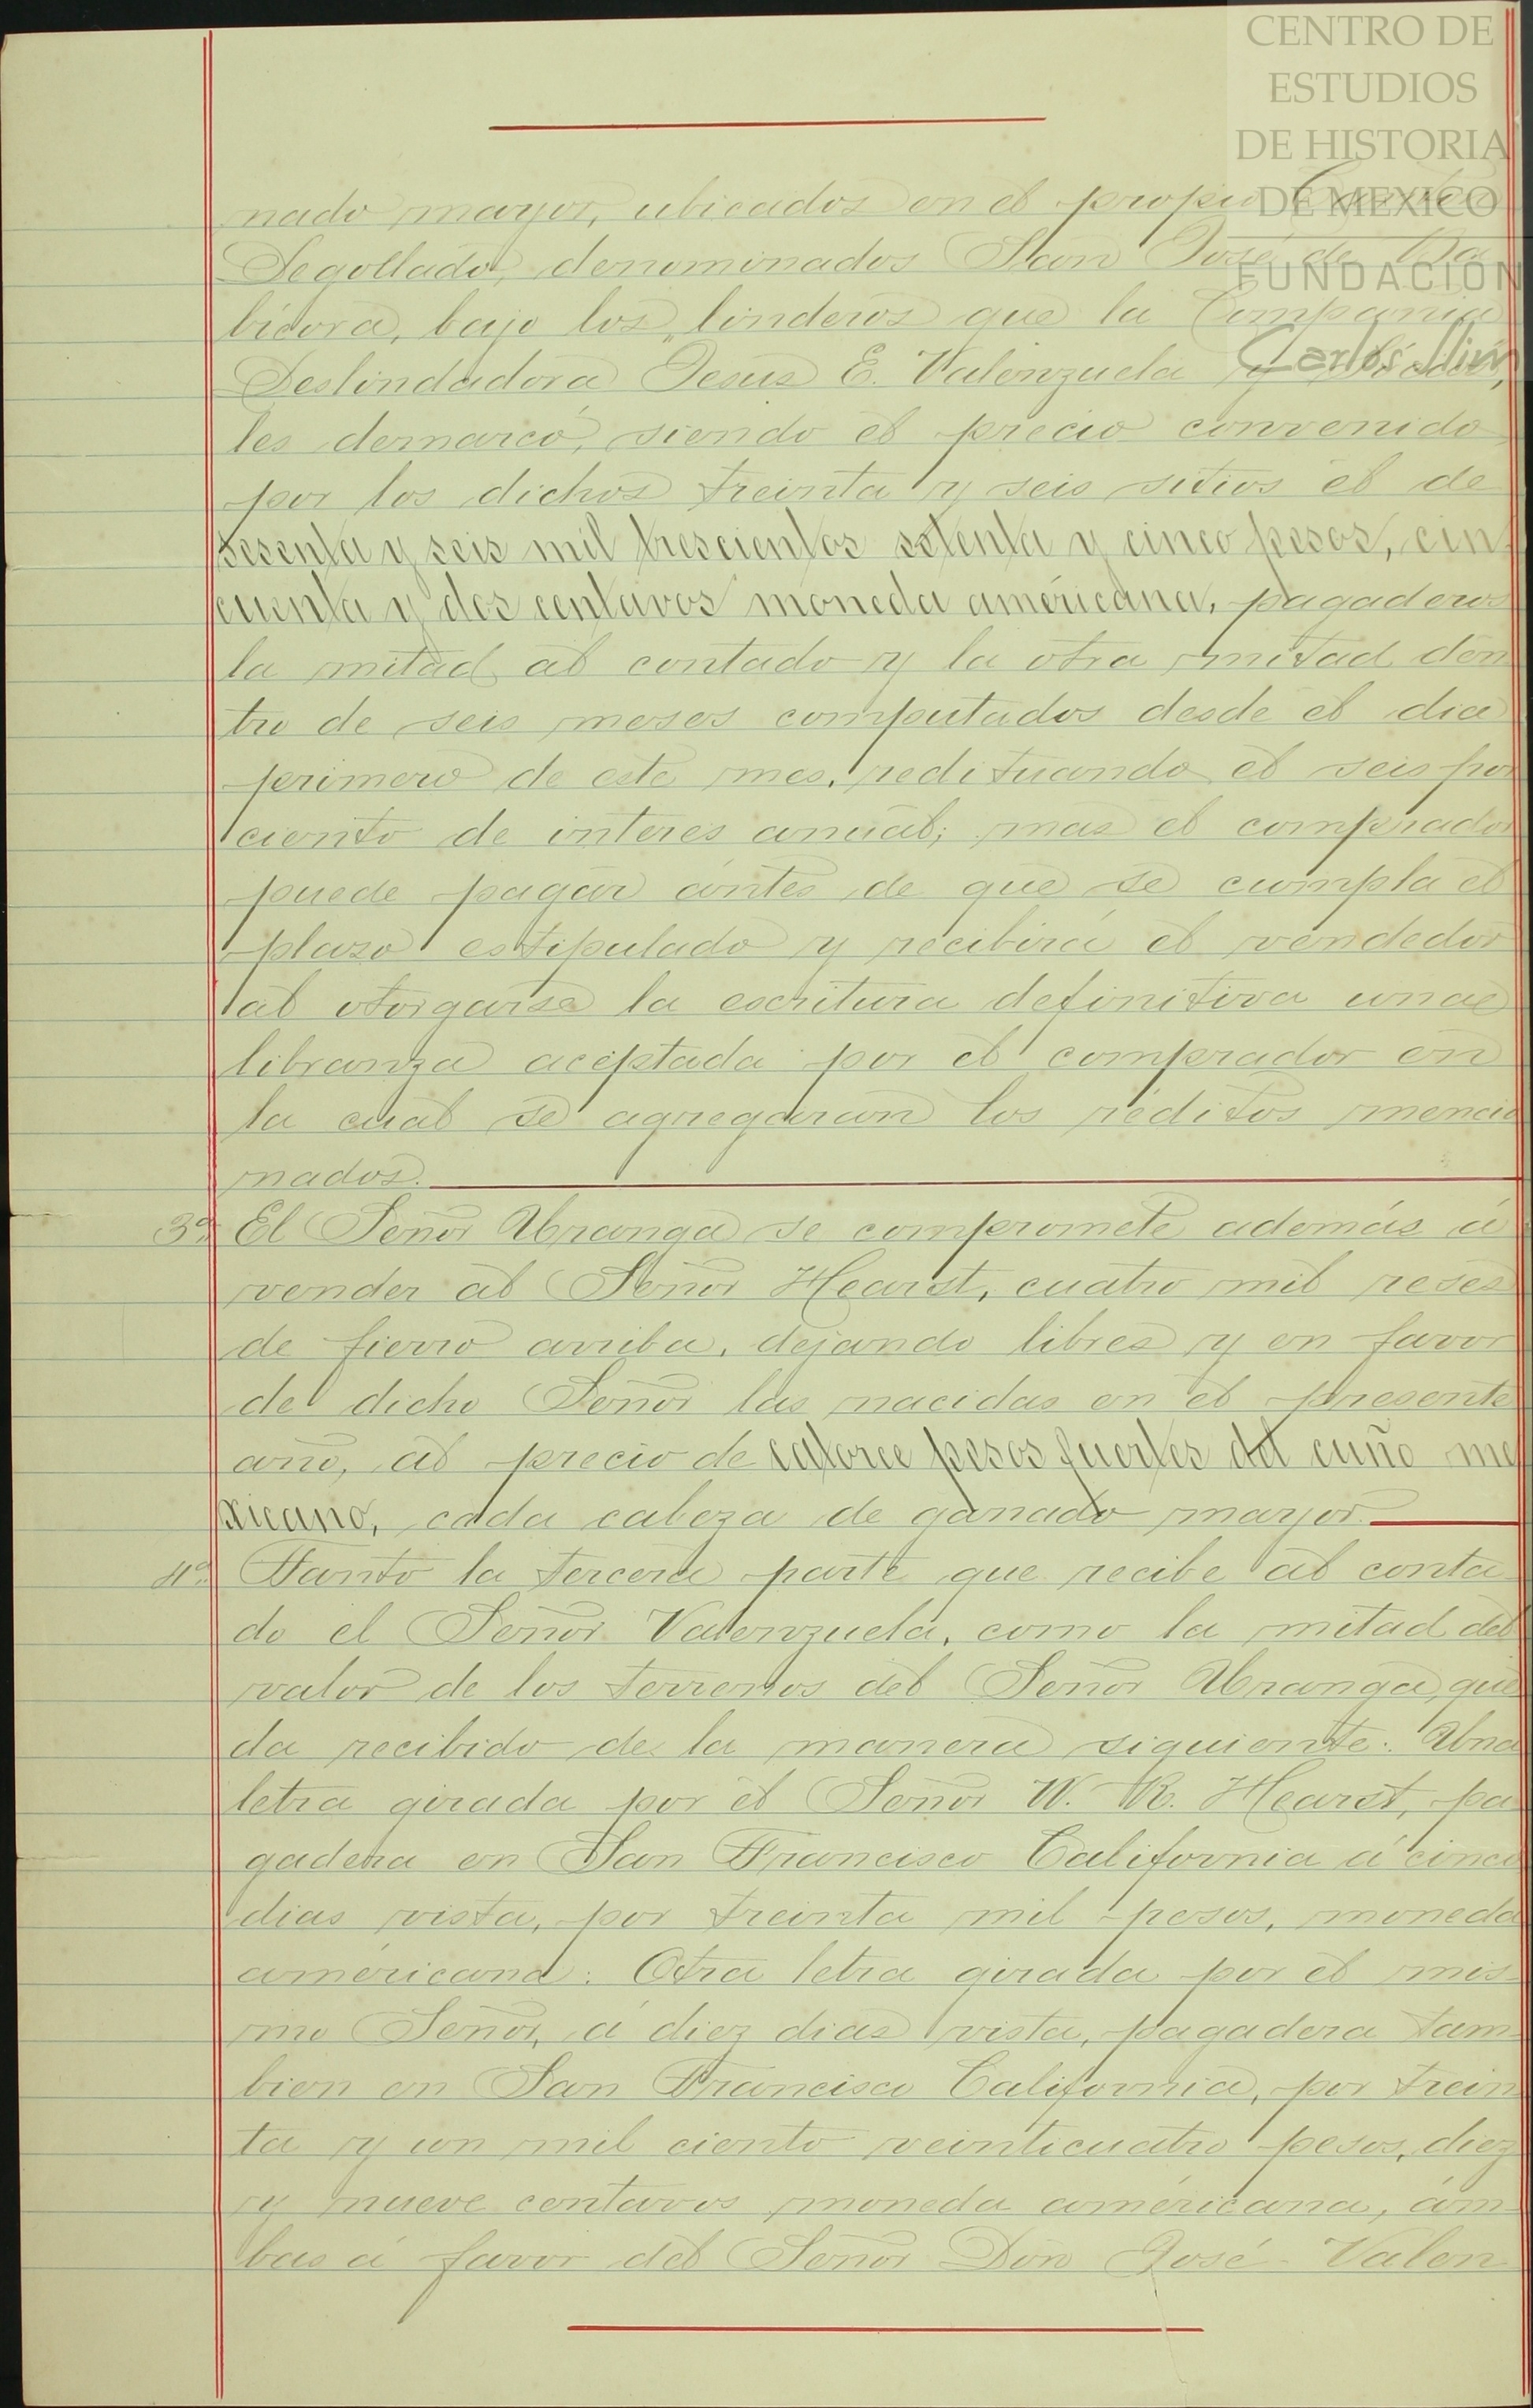 CENTRO DE
ESTUDIOS
DE HISTORIA
DE MEXICO
FUNDACIÓN
Carlos Slim
nado mayor, ubicados en el propio Canton
Degollado, denominados San José de Ba
bícora, bajo los linderos que la Compañia
Deslindadora Jesus E. Valenzuela y Socios,
les demarcó, siendo el precio convenido
por los dichos treinta y seis sitios el de
sesenta y seis mil trescientos setenta y cinco pesos, cin
cuenta y dos centavos moneda américana, pagaderos
la mitad al contado y la otra mitad den
tro de seis meses computados desde el dia
primero de este mes, redituando el seis por
ciento de interes anual; mas el comprador
puede pagar ántes de que se cumpla el
plazo estipulado y recibirá el vendedor
al otorgarse la escritura definitiva una
libranza aceptada por el comprador en
la cual se agregaran los réditos mencio
nados.
3ª. El Señor Uranga se compromete además á
vender al Señor Hearst, cuatro mil reses
de fierro arriba, dejando libres y en favor
de dicho Señor las nacidas en el presente
año, al precio de catorce pesos fuertes del cuño me
xicano, cada cabeza de ganado mayor.
4ª. Tanto la tercera parte que recibe al conta
do el Señor Valenzuela, como la mitad del
valor de los terrenos del Señor Uranga, que
da recibido de la manera siguiente: Una
letra girada por el Señor W. R. Hearst, pa
gadera en San Francisco California á cinco
dias vista, por treinta mil pesos, moneda
américana: Otra letra girada por el mis-
mo Señor, á diez dias vista, pagadera tam-
bien en San Francisco California, por trein
ta y un mil ciento veinticuatro pesos, diez
y nueve centavos moneda américana, ám-
bas á favor del Señor Don José Valen